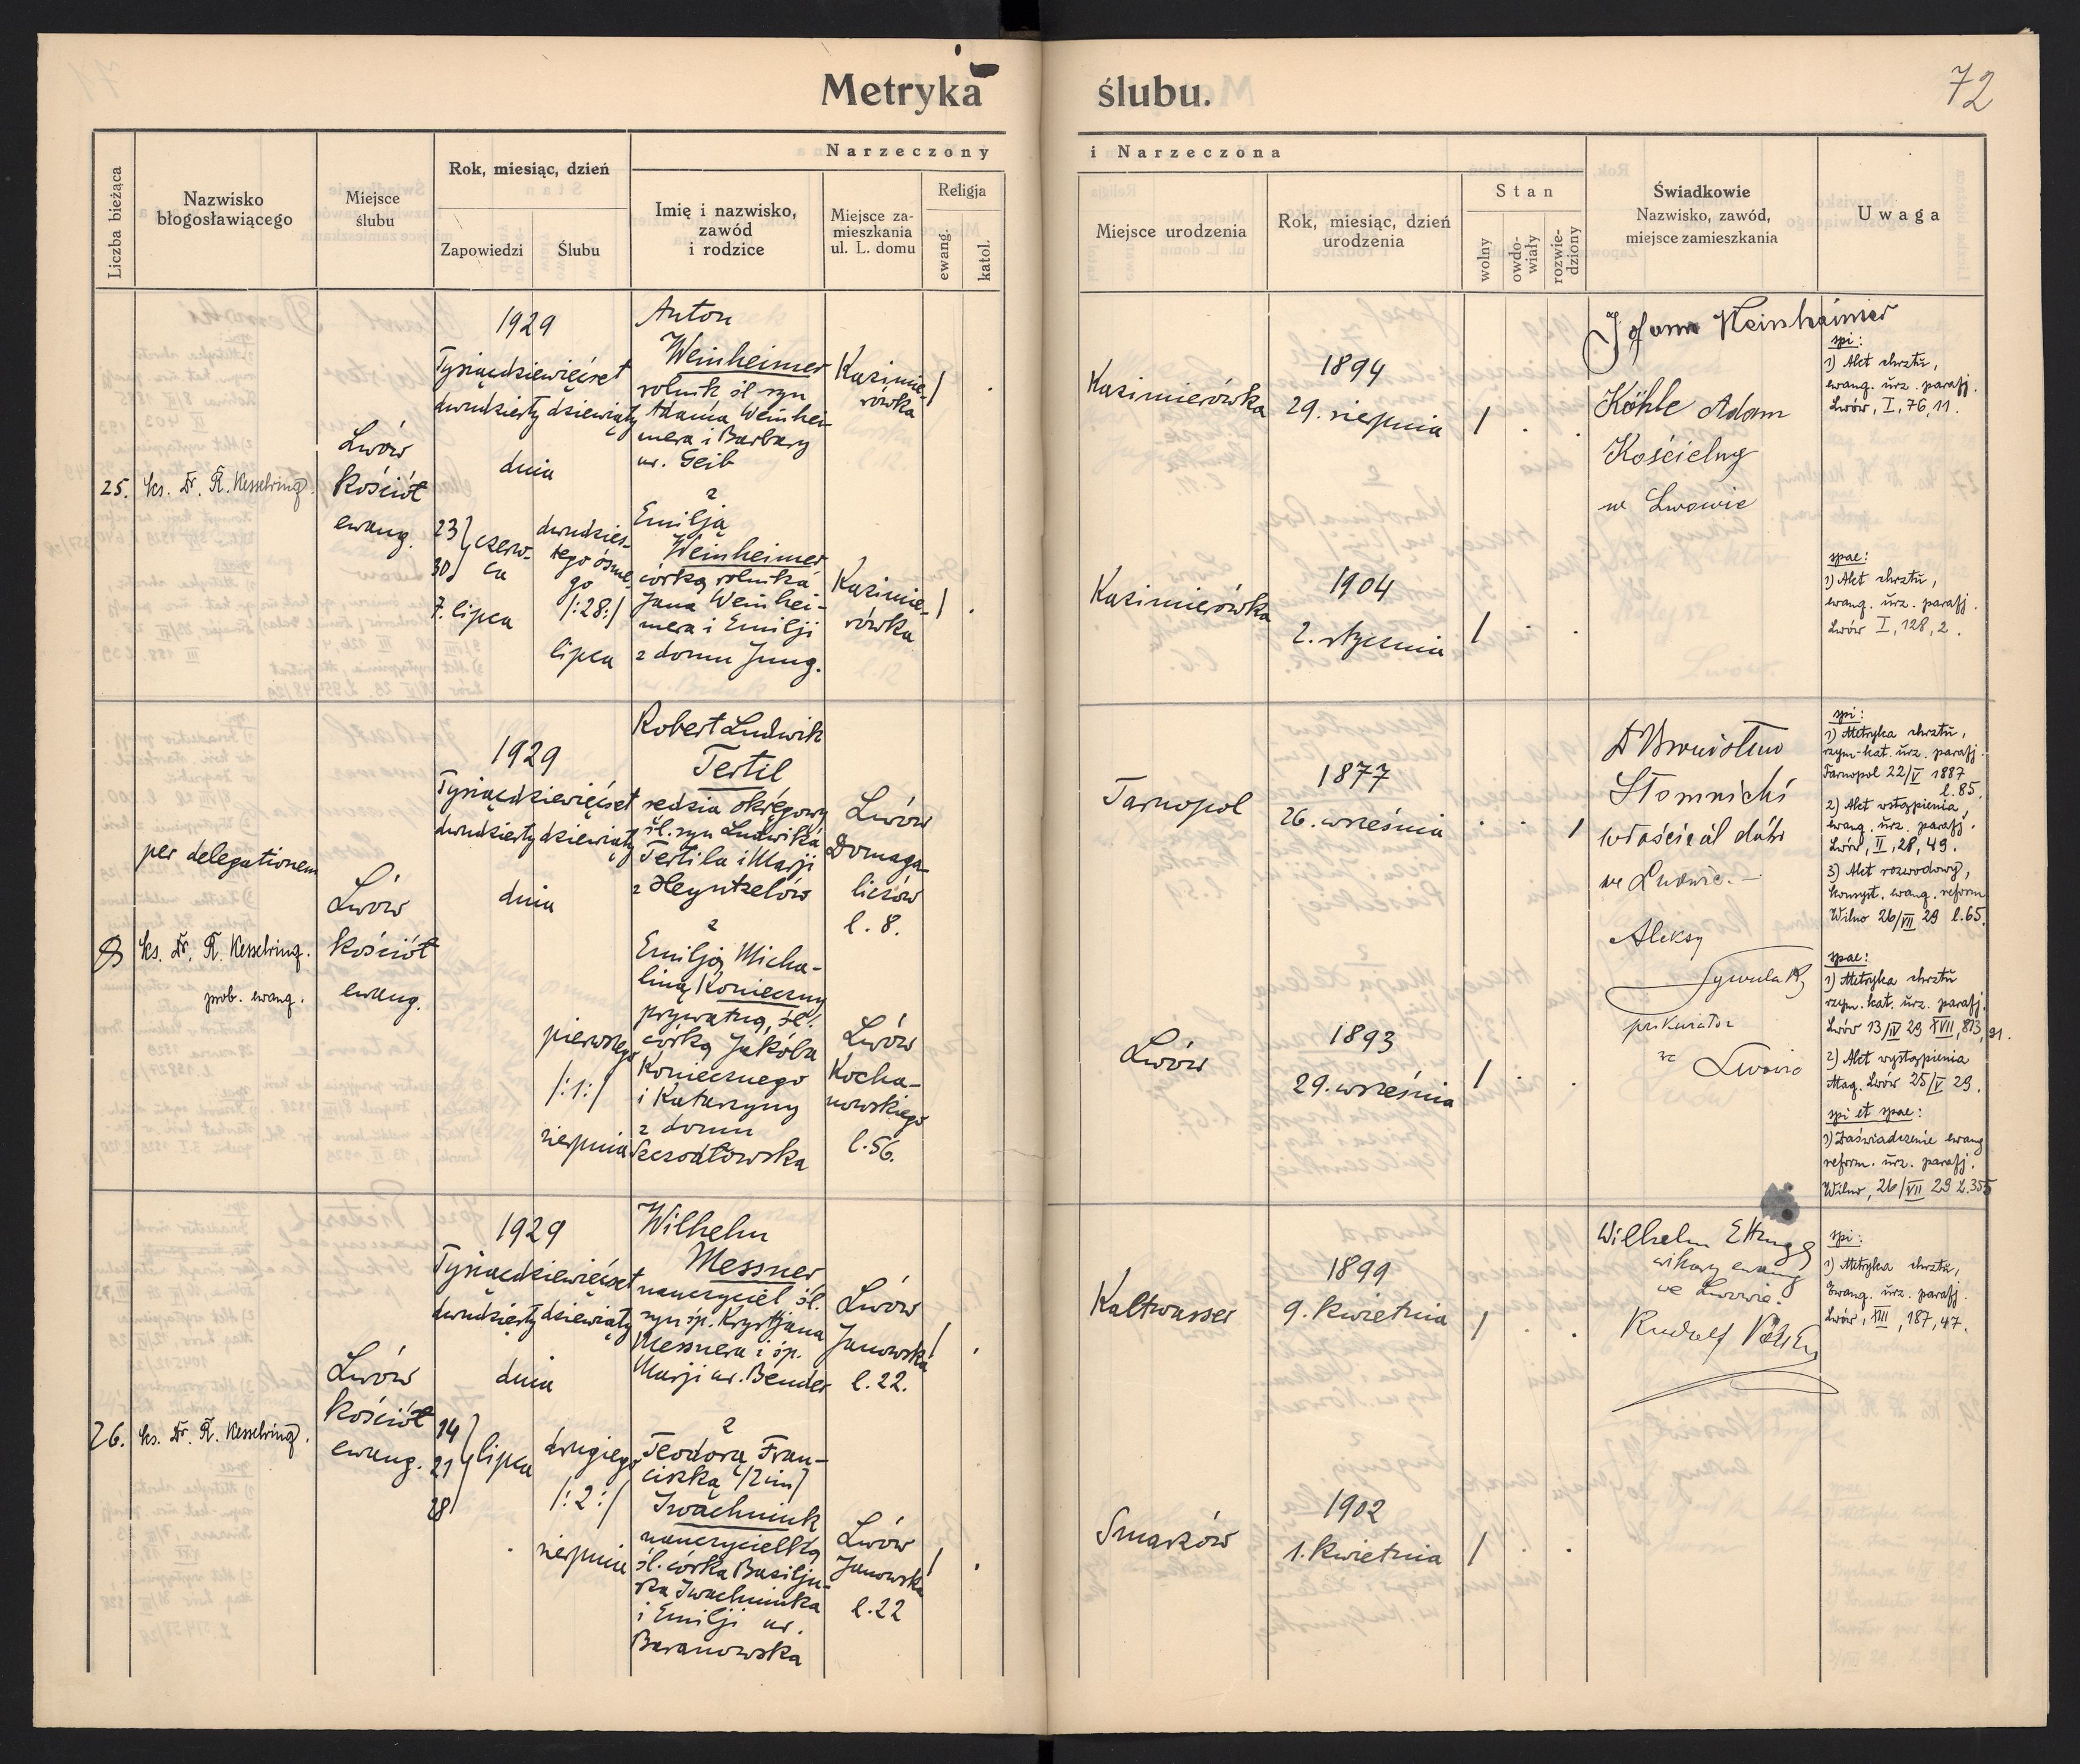 72
Metryka ślubu.
Liczba bieżąca
Nazwisko
błogosławiącego
Miejsce
ślubu
Rok, miesiąc, dzień
Zapowiedzi
Ślubu
Narzeczony
Imię i nazwisko,
zawód
i rodzice
Miejsce za-
mieszkania
ul. L. domu
Religja
ewang.
katol.
i Narzeczona
Miejsce urodzenia
Rok, miesiąc, dzień
urodzenia
Stan
wolny
owdo-
wiały
rozwie-
dziony
Świadkowie
Nazwisko, zawód,
miejsce zamieszkania
Uwaga
25.
ks. Dr. R. Kesselring.
Lwów
kościół
ewang.
1929
Tysiącdziewięćset
dwudziesty dziewiąty
dnia
23
30
czerw-
ca
7. lipca
dwudzies-
tego ósme
go
/:28:/
lipca
Anton
Weinheimer
rolnik śl. syn
Adama Weinhei-
mera i Barbary
ur. Geib
z
Emilją
Weinheimer
córką rolnika
Jana Weinhei-
mera i Emilji
z domu Jung.
Kazimie-
rówka
/
.
Kazimie-
rówka
/
.
Kazimierówka
1894
29. sierpnia
/ . .
Kazimierówka
1904
2. stycznia
/ . .
Johann Weinheimer
Köhle Adam
Kościelny
we Lwowie
spi:
1) Akt chrztu,
ewang. urz. parafj.
Lwów, I, 76, 11.
spae:
1) Akt chrztu,
ewang. urz. parafj.
Lwów I, 128, 2.
per delegationem
ks. Dr. R. Kesselring.
prob. ewang.
Lwów
kościół
ewang.
1929
Tysiącdziewięćset
dwudziesty dziewiąty
dnia
pierwszego
/:1:/
sierpnia
Robert Ludwik
Tertil
sędzia okręgowy
śl. syn Ludwika
Tertila i Marji
z Heyntzelów
z
Emilją Micha-
liną Konieczny
prywatną, śl.
córką Jakóba
Koniecznego
i Katarzyny
z domu
Szczodłowska
Lwów
Domaga-
liczów
l. 8.
Lwów
Kocha-
nowskiego
l. 56.
Tarnopol
1877
26. września
. . /
Lwów
1893
29. września
/ . .
Dr Bronisław
Słomnicki
właściciel dóbr
we Lwowie. —
Aleksy
prokurator
we Lwowie
spi:
1) Metryka chrztu,
rzym-kat. urz. parafj.
Tarnopol 22/V 1887
l. 85.
2) Akt wstąpienia,
ewang. urz. parafj.
Lwów, II, 28, 49.
3) Akt rozwodowy,
konsyst. ewang. reform
Wilno 26/VII 29 l. 65.
spae:
1) Metryka chrztu
rzym. kat. urz. parafj.
Lwów 13/IV 29 XVII, 813, 91.
2) Akt wystąpienia
Mag. Lwów 25/V 29.
spi et spae:
1) Zaświadczenie ewang
reform. urz. parafj.
Wilno, 26/VII 29 L. 355
26.
ks. Dr. R. Kesselring.
Lwów
kościół
ewang.
1929
Tysiącdziewięćset
dwudziesty dziewiąty
dnia
14
21
28
lipca
drugiego
/:2:/
sierpnia
Wilhelm
Messner
nauczyciel śl.
syn śp. Krystjana
Messnera i śp.
Marji ur. Bender
z
Teodora Fran-
ciszką /2 im/
Iwachniuk
nauczycielką
śl. córka Basilju-
sza Iwachniuka
i Emilji ur.
Baranowska
Lwów
Janowska
l. 22.
/
.
Lwów
Janowska
l. 22
/
.
Kaltwasser
1899
9. kwietnia
/ . .
Smarzów
1902
1. kwietnia
/ . .
Wilhelm Ettinger
wikary ewang
we Lwowie.
Rudolf
spi:
1) Metryka chrztu,
Ewang. urz. parafj.
Lwów, VIII, 187, 47.